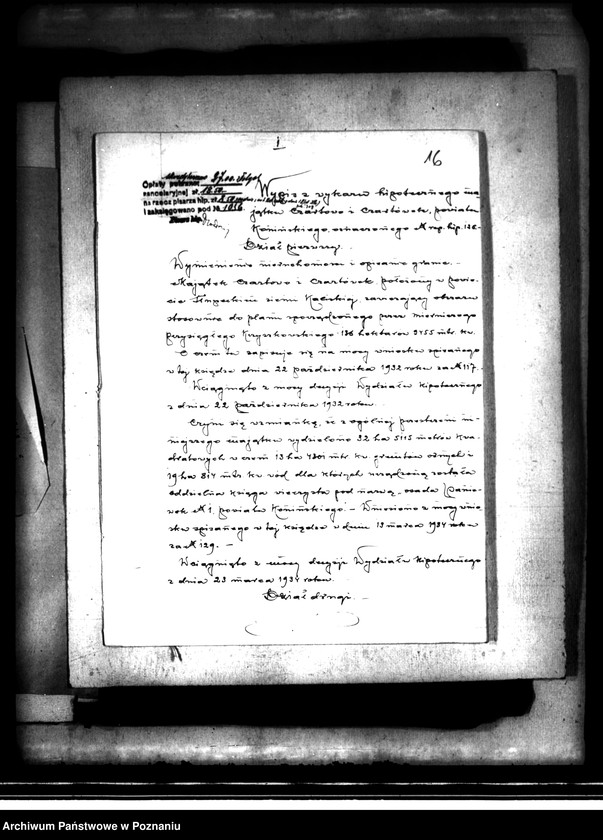 I
16
Opłaty pobrano
kancelaryjnej zł.
na rzecz pisarza hip. zł.
i zaksięgowano pod № 1016
Wypis z wykazu hipotecznego ma-
jątku Czartowo i Czartówek, powiatu
Konińskiego, oznaczonego № rep. hip. 126.
Dział pierwszy.
Wymienienie nieruchomości i opisanie granic. –
Majątek Czartowo i Czartówek, położony w powie-
cie Słupeckim ziemi Kaliskiej, zawierający obszaru
stosownie do planu sporządzonego przez mierniczego
przysięgłego 136 hektarów 9755 mtr. kw.
O czem tu zapisuje się na mocy wniosku spisanego
w tej księdze dnia 22 października 1932 roku za № 117.
Wciągnięto z mocy decyzji Wydziału Hipotecznego
z dnia 22 października 1932 roku.
Czyni się wzmiankę, że z ogólnej przestrzeni ni-
niejszego majątku wydzielono 32 ha 5115 metrów kwa-
dratowych w czem 13 ha 4301 mtr. kw. gruntów ornych i
19 ha 814 mtr. kw. wód, dla których urządzoną została
oddzielna księga wieczysta pod nazwą – osada
№ 1, powiatu Konińskiego. – Wniesiono z mocy wnio-
sku spisanego w tej księdze w dniu 13 marca 1934 roku
za № 129. –
Wciągnięto z mocy decyzji Wydziału Hipotecznego
z dnia 23 marca 1934 roku.
Dział drugi. –
Archiwum Państwowe w Poznaniu